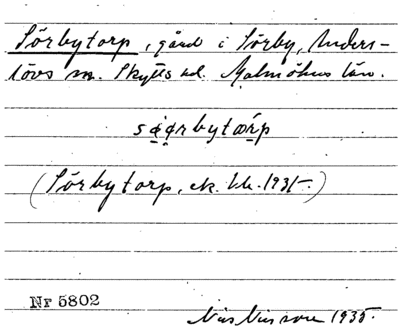 Sörbytorp, gård i Sörby, Anders-
lövs sn. Skytts hd. Malmöhus län.
(Sörbytorp, ek. bl. 1931-.)
Nr 5802
Nils Nilsson 1935.